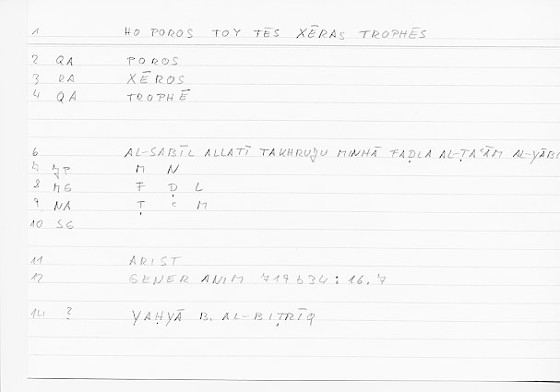 1 HO POROS TOY TĒS XĒRAS TROPHĒS
2 QA POROS
3 RA XĒROS
4 QA TROPHĒ
6 AL-SABĪL ALLATĪ TAKHRUǦU MINHĀ FAḌLA AL-ṬAʿĀM AL-YĀBI
7 JP M N
8 MG F Ḍ L
9 NA Ṭ ʿ M
10 SG
11 ARIST
12 GENER ANIM 719b34 : 16.7
14 ? YAḤYĀ B. AL-BIṬRĪQ